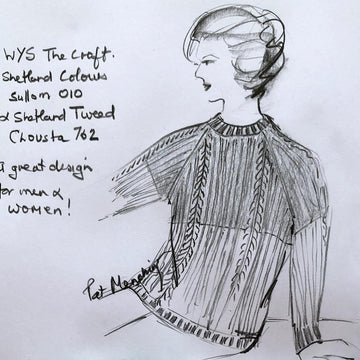 WYS The Craft.
Shetland Colours
Sullom 010
& Shetland Tweed
Chousta 762
A great design
for men &
WOMEN!
Pat Menchini